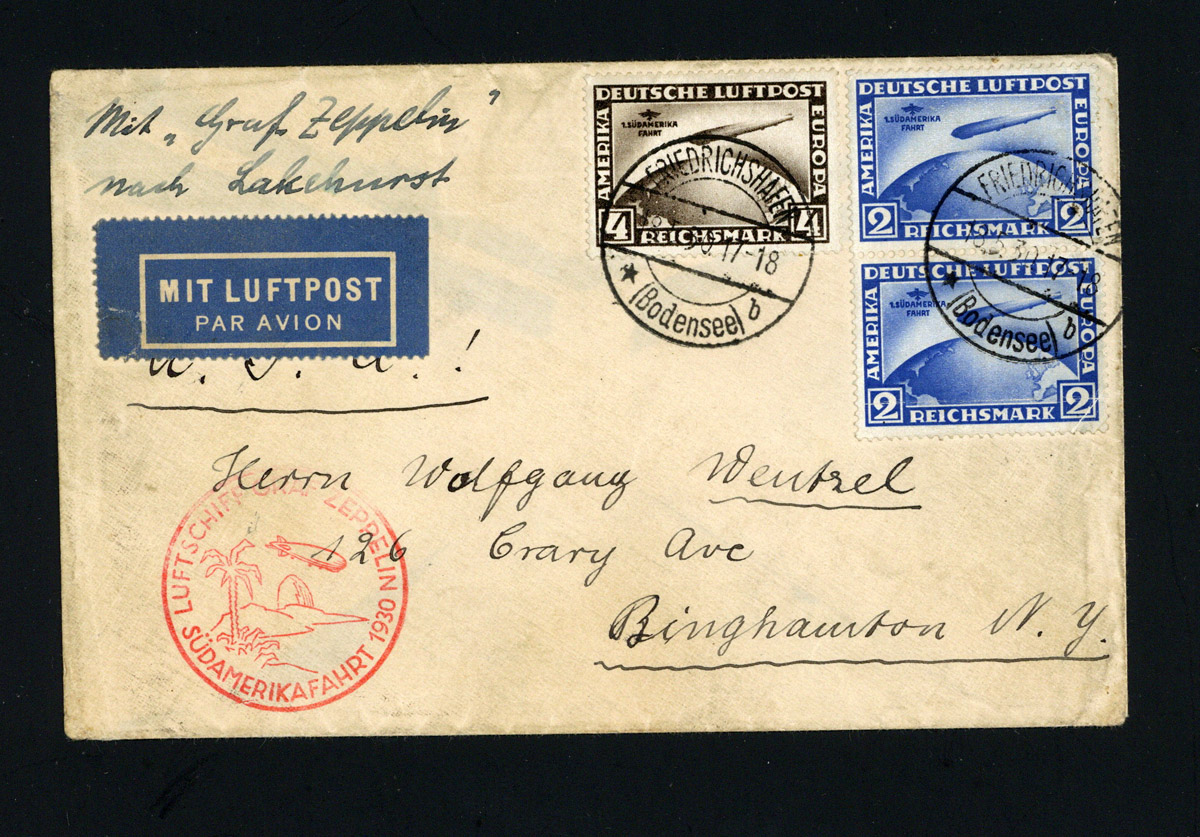 Mit „Graf Zeppelin"
nach Lakehurst
MIT LUFTPOST
PAR AVION
U. S. A.!
DEUTSCHE LUFTPOST
AMERIKA
EUROPA
1. SÜDAMERIKA
FAHRT
4 4
REICHSMARK
DEUTSCHE LUFTPOST
AMERIKA
EUROPA
1. SÜDAMERIKA
FAHRT
2 2
REICHSMARK
DEUTSCHE LUFTPOST
AMERIKA
EUROPA
1. SÜDAMERIKA
FAHRT
2 2
REICHSMARK
FRIEDRICHSHAFEN
17-18
(Bodensee) b
FRIEDRICHSHAFEN
18.5.30.17-18
(Bodensee) b
Herrn Wolfgang Wentzel
126 Crary Ave
Binghamton N. Y.
LUFTSCHIFF GRAF ZEPPELIN
SÜDAMERIKAFAHRT 1930